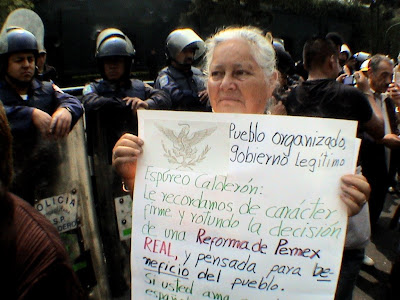 Pueblo organizado,
gobierno legítimo
Espúreo Calderón:
Le recordamos de carácter
firme y rotundo la decisión
de una Reforma de Pemex
REAL, y pensada para be-
neficio del pueblo.
Si usted ama
POLICIA
S.P.